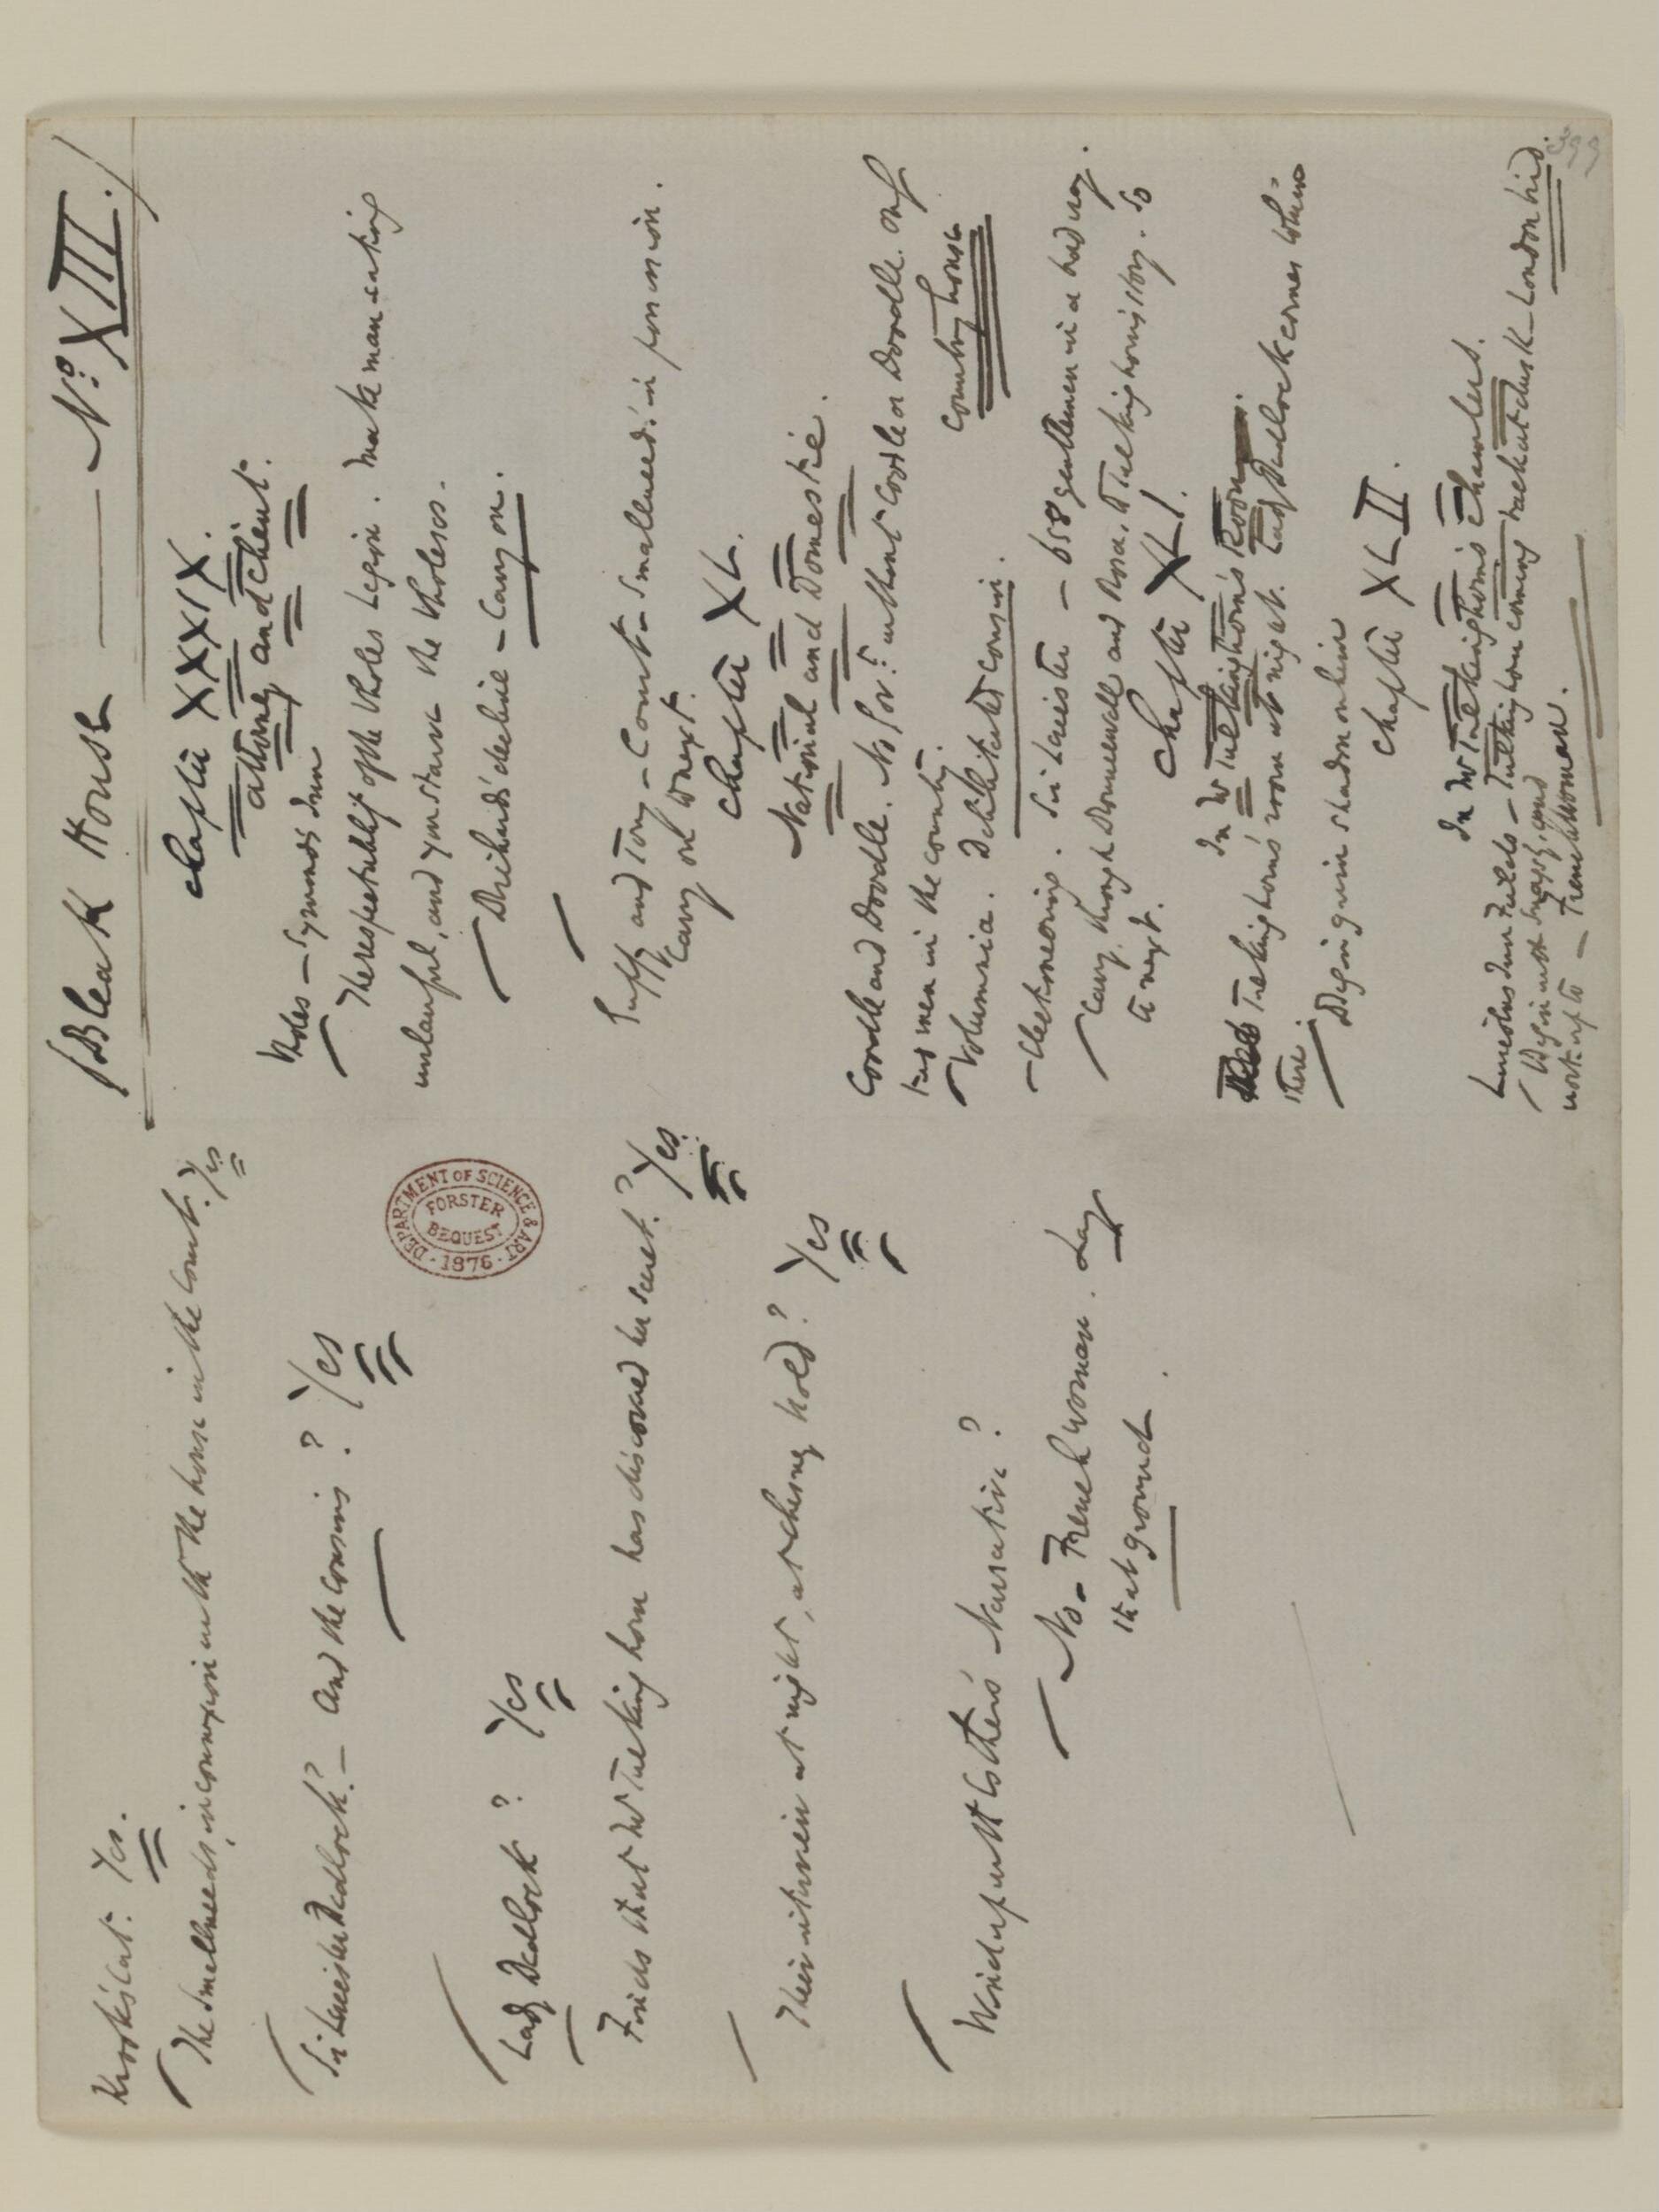 Krook's Cat. Yes.
The Smallweeds, in connexion with the house in the Court. Yes
Sir Leicester Dedlock? — And the cousins? Yes
Lady Dedlock? Yes
Finds that Mr Tulkinghorn has discovered her secret? Yes.
Their interview at night, at Chesney Wold? Yes
Wind up with Esther's Narrative?
No — Frenchwoman. Lay
that ground.
DEPARTMENT OF SCIENCE & ART
FORSTER
BEQUEST
1876
(Bleak House — No: XIII.)
Chapter XXXIX.
Attorney and Client.
Vholes — Symonds Inn
The respectability of the Vholes Legion. Make man-eating
unlawful, and you starve the Vholeses.
Richard's decline — Carry on.
Guppy and Tony — Court — Smallweeds in possession.
Carry on to next.
Chapter XL.
National and Domestic.
Coodle and Doodle. No Govt: without Coodle or Doodle. Only
two men in the country.
Country house
Volumnia. Debilitated cousin.
— Electioneering. Sir Leicester — 658 gentlemen in a bad way.
Carry through Rouncewell and Rosa, to Tulkinghorn's story. So
to next.
Chapter XLI.
In Mr Tulkinghorn's Room.
Tulkinghorn's room at night. Lady Dedlock comes to him
there.
Begin grim shadow on him
Chapter XLII.
In Mr Tulkinghorn's chambers.
Lincolns Inn Fields — Tulkinghorn coming back at dusk — London bird.
Begin with Snagsby, and
work up to — Frenchwoman.
399